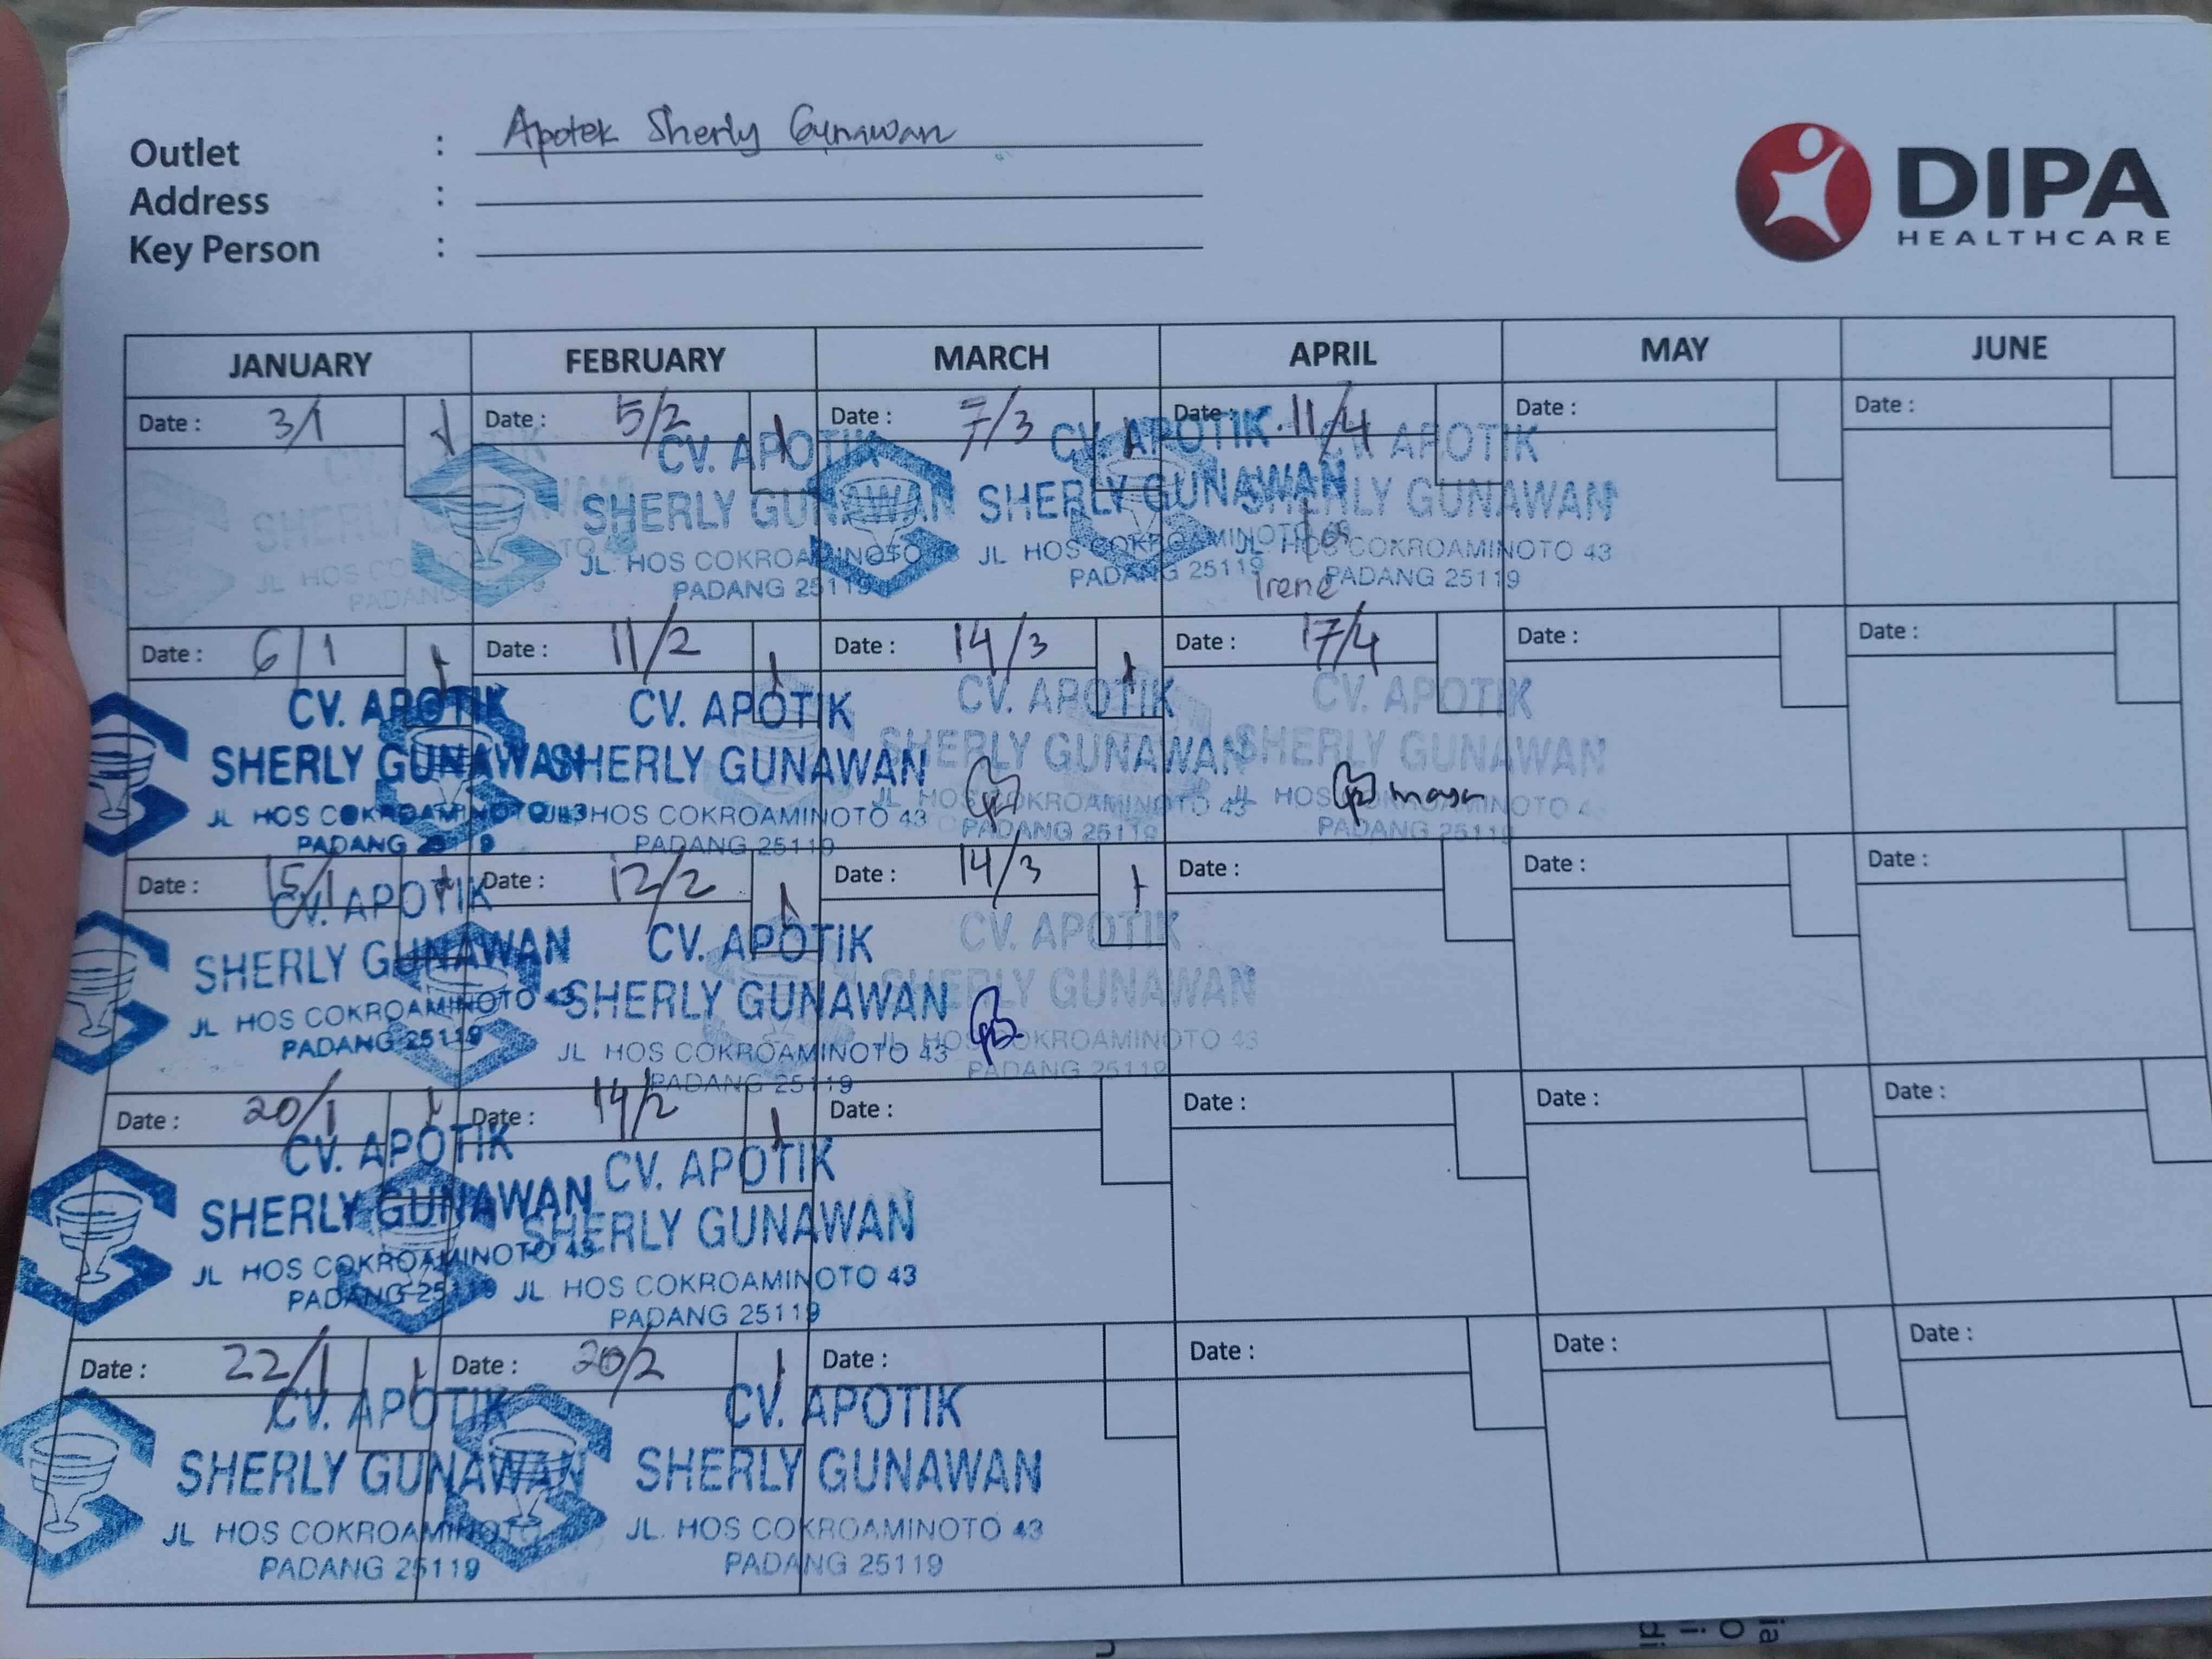 Outlet : Apotek Sherly Gunawan
Address :
Key Person :
DIPA
HEALTHCARE
JANUARY FEBRUARY MARCH APRIL MAY JUNE
Date : 3/1 Date : 5/2 Date : 7/3 Date : 11/4 Date : Date :
CV. APOTIK CV. APOTIK CV. APOTIK CV. APOTIK
SHERLY GUNAWAN SHERLY GUNAWAN SHERLY GUNAWAN SHERLY GUNAWAN
JL HOS COKROAMINOTO 43 JL HOS COKROAMINOTO JL HOS COKROAMINOTO JL HOS COKROAMINOTO 43
PADANG PADANG 25119 PADANG 25119 PADANG 25119
Irene
Date : 6/1 Date : 11/2 Date : 14/3 Date : 17/4 Date : Date :
CV. APOTIK CV. APOTIK CV. APOTIK CV. APOTIK
SHERLY GUNAWAN SHERLY GUNAWAN SHERLY GUNAWAN SHERLY GUNAWAN
JL HOS COKROAMINOTO 43 JL HOS COKROAMINOTO 43 JL HOS COKROAMINOTO 43 JL HOS COKROAMINOTO 4
PADANG 25119 PADANG 25119 PADANG 25119 PADANG 25119
Date : 15/1 Date : 12/2 Date : 14/3 Date : Date : Date :
CV. APOTIK CV. APOTIK CV. APOTIK
SHERLY GUNAWAN SHERLY GUNAWAN SHERLY GUNAWAN
JL HOS COKROAMINOTO 43 JL HOS COKROAMINOTO 43 JL HOS COKROAMINOTO 43
PADANG 25119 PADANG 25119 PADANG 25119
Date : 20/1 Date : 14/2 Date : Date : Date : Date :
CV. APOTIK CV. APOTIK
SHERLY GUNAWAN SHERLY GUNAWAN
JL HOS COKROAMINOTO 43 JL HOS COKROAMINOTO 43
PADANG 25119 PADANG 25119
Date : 22/1 Date : 20/2 Date : Date : Date : Date :
CV. APOTIK CV. APOTIK
SHERLY GUNAWAN SHERLY GUNAWAN
JL HOS COKROAMINOTO JL. HOS COKROAMINOTO 43
PADANG 25119 PADANG 25119